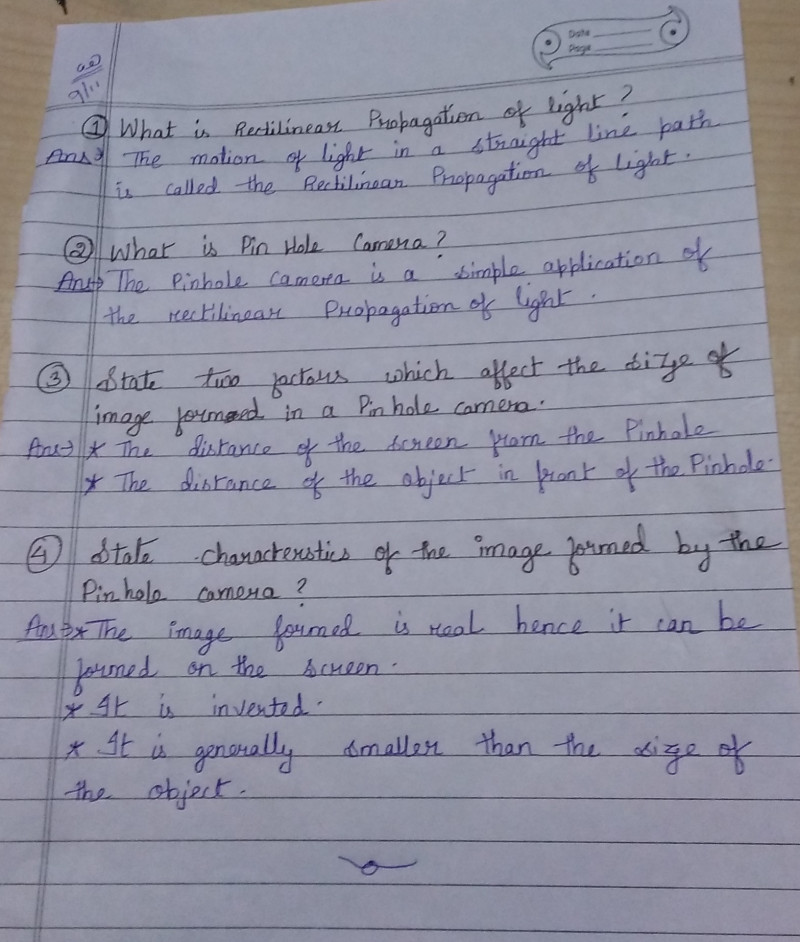 Date
Page
9/11
① What is Rectilinear Propagation of light?
Ans→ The motion of light in a straight line path
is called the Rectilinear Propagation of light.
② What is Pin Hole Camera?
Ans→ The Pinhole camera is a simple application of
the rectilinear Propagation of light.
③ State two factors which affect the size of
image formed in a Pinhole camera.
Ans→ * The distance of the screen from the Pinhole
* The distance of the object in front of the Pinhole.
④ State characterstics of the image formed by the
Pinhole camera?
Ans→ * The image formed is real hence it can be
formed on the screen.
* It is inverted.
* It is generally smaller than the size of
the object.